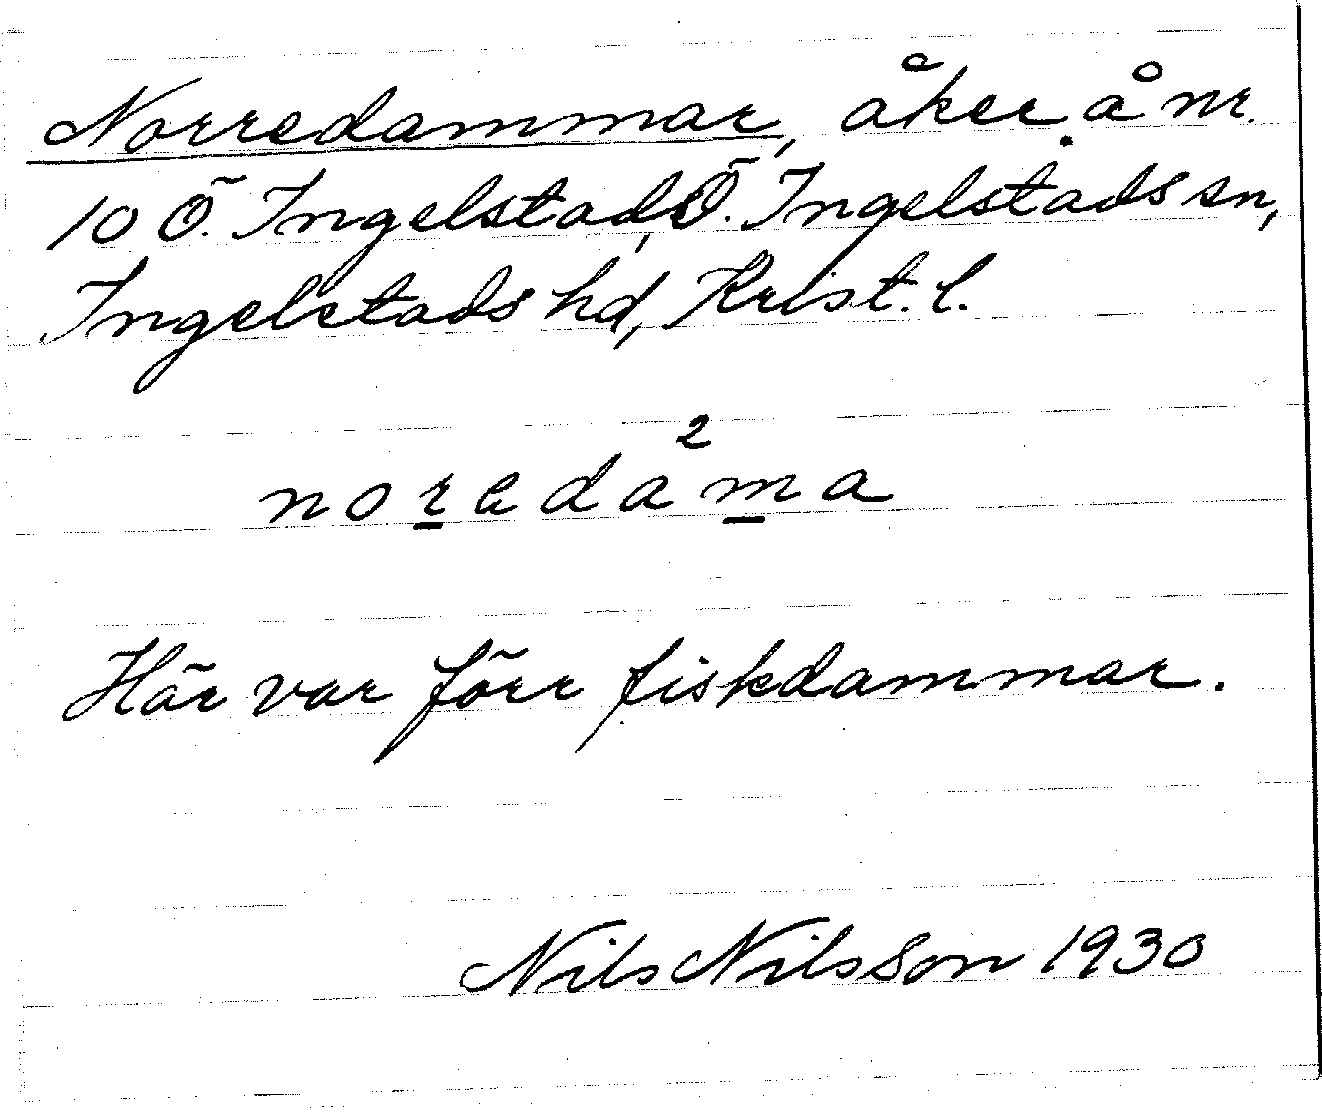 Norredammar, åker å nr.
10 Ö. Ingelstad, Ö. Ingelstads sn,
Ingelstads hd, Krist. l.
nor̲eda²m̲a
Här var förr fiskdammar.
Nils Nilsson 1930